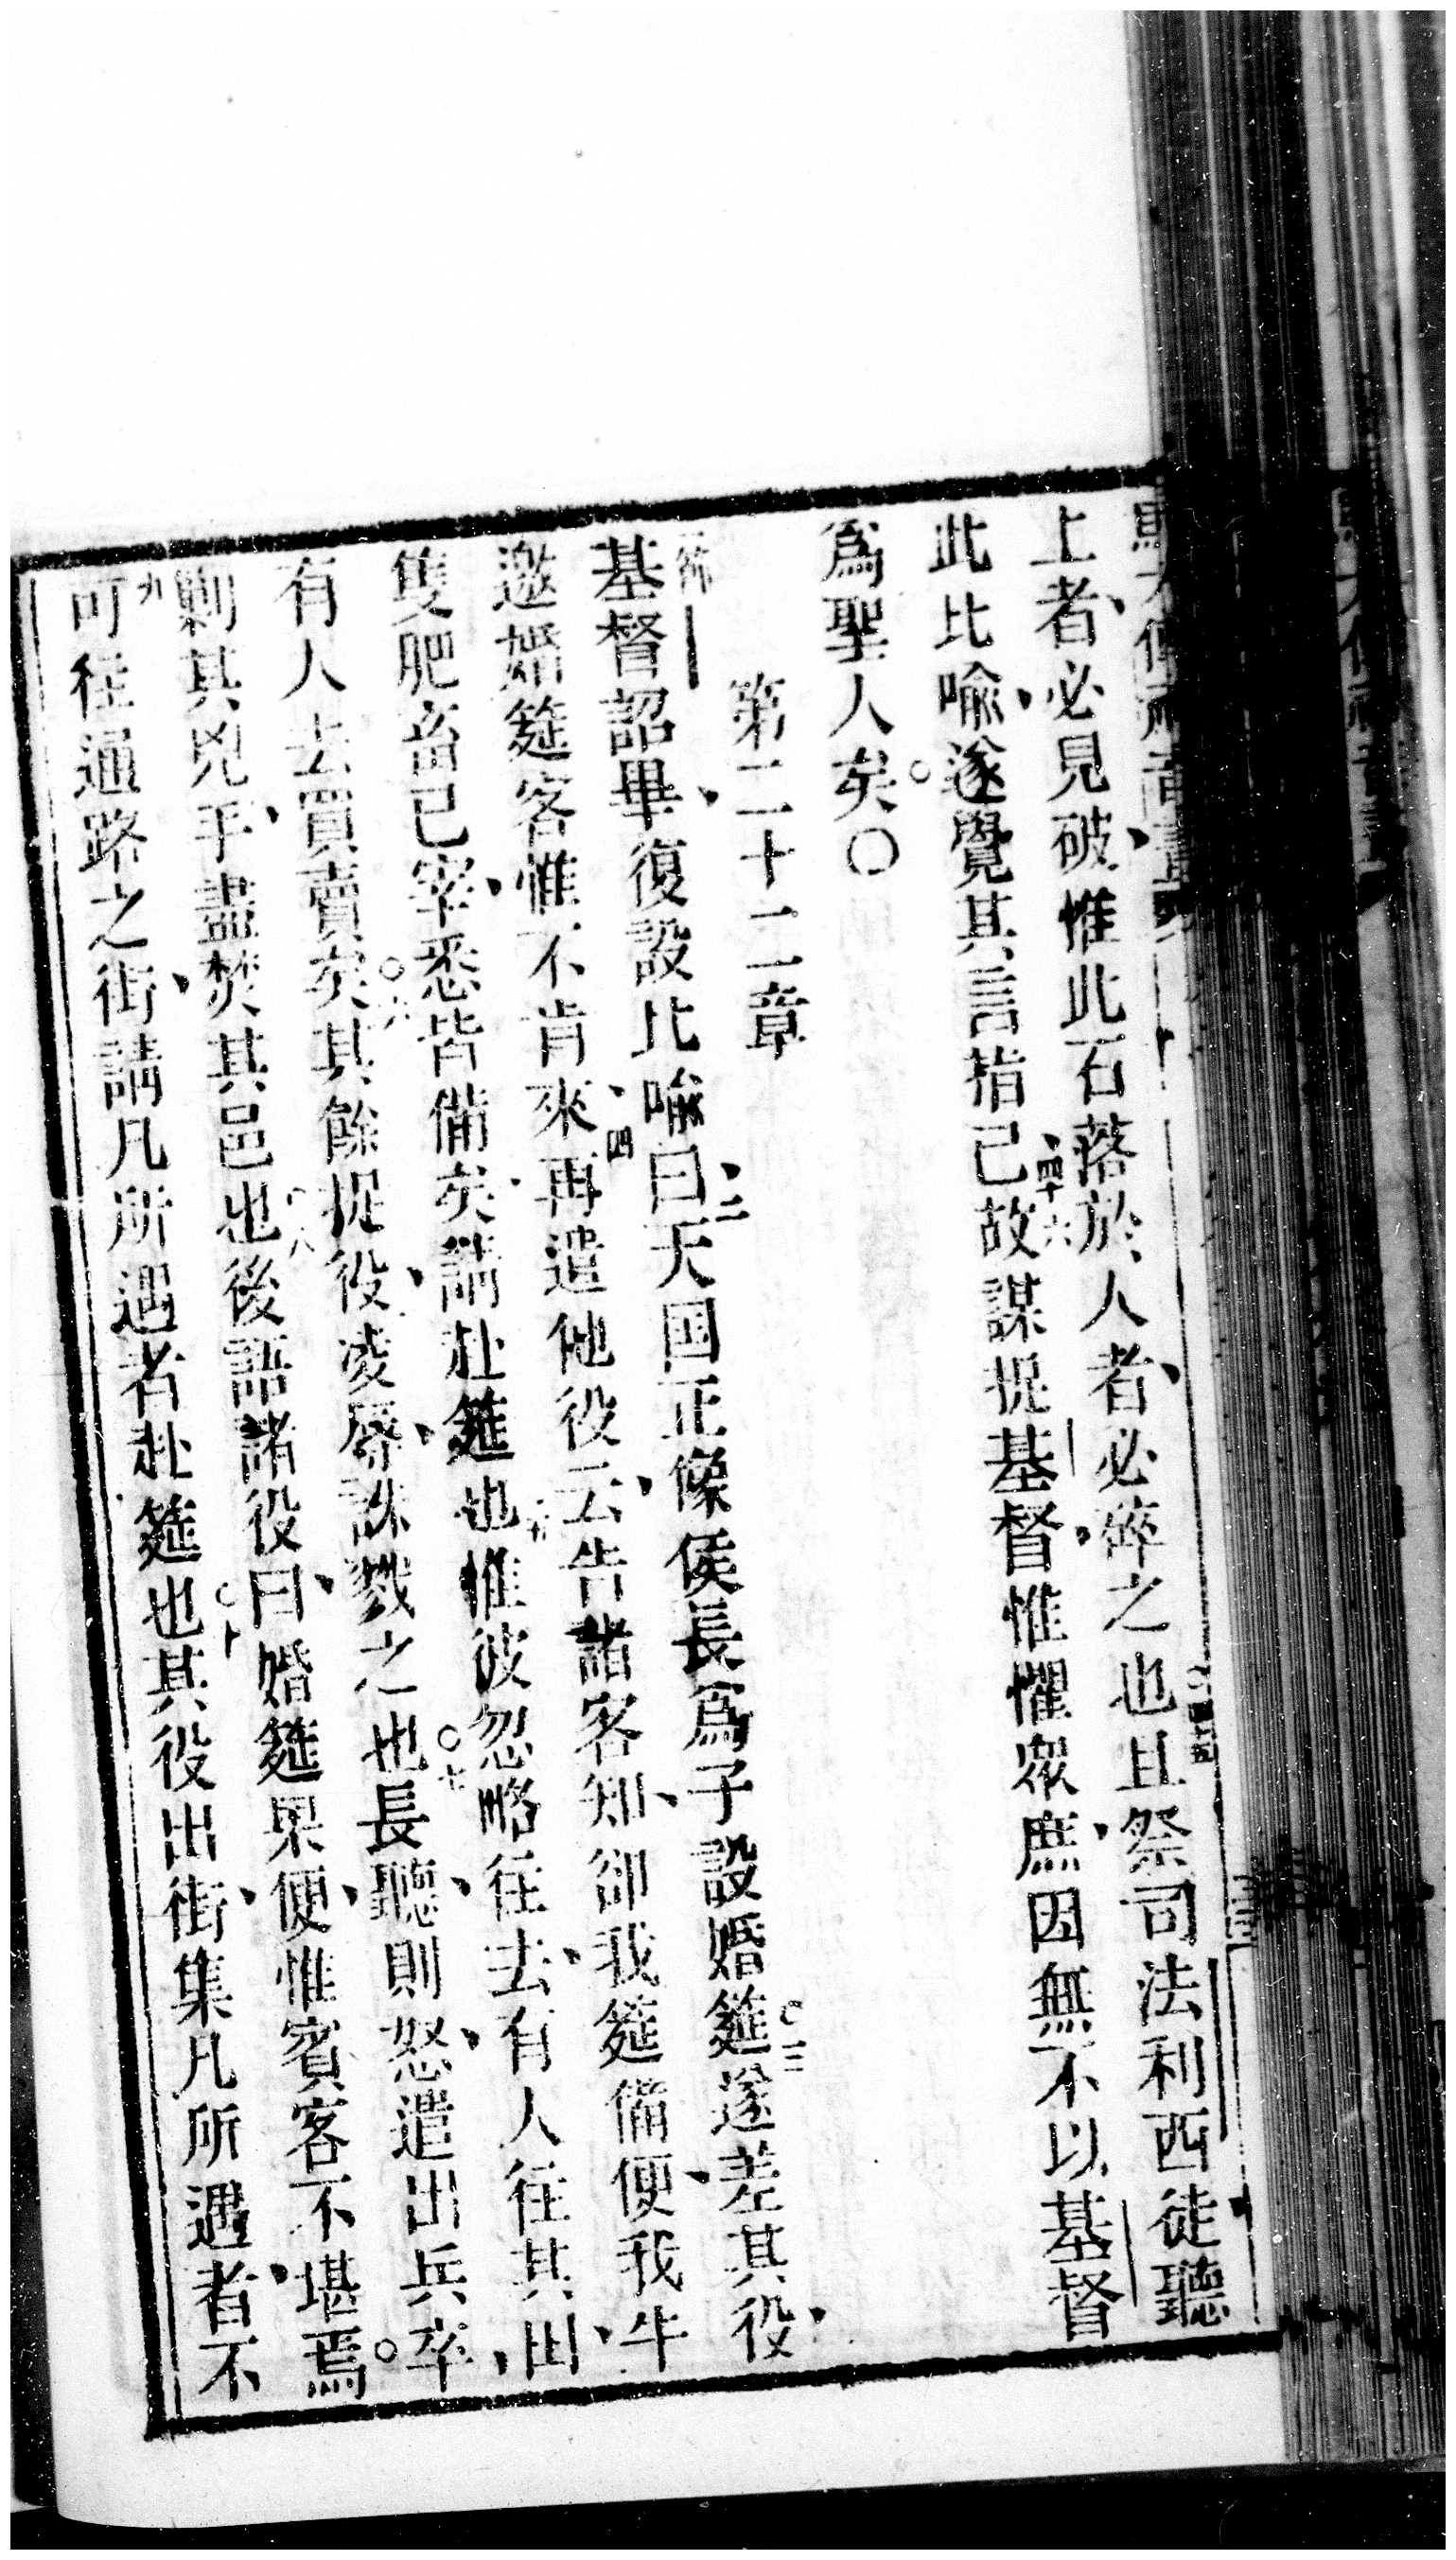 上者必見破惟此石落於人者必碎之也。四十五且祭司法利西徒聽
此比喻遂覺其言指己四十六故謀捉基督惟懼衆庶因無不以基督
爲聖人矣。〇
第二十二章
一節基督詔畢復設比喻曰二天国正像侯長爲子設婚筵。三遂差其役
邀婚筵客惟不肯來四再遣他役云告諸客知卻我筵備便我牛
隻肥畜已宰悉皆備矣請赴筵也惟彼忽略往去有人往其田
有人去買賣矣。六其餘捉役凌辱誅戮之也。七長聽則怒遣出兵卒
剿其兇手盡焚其邑也。八後語諸役曰婚筵果便惟賓客不堪焉。
九可往通路之街請凡所遇者赴筵也。十其役出街集凡所遇者不